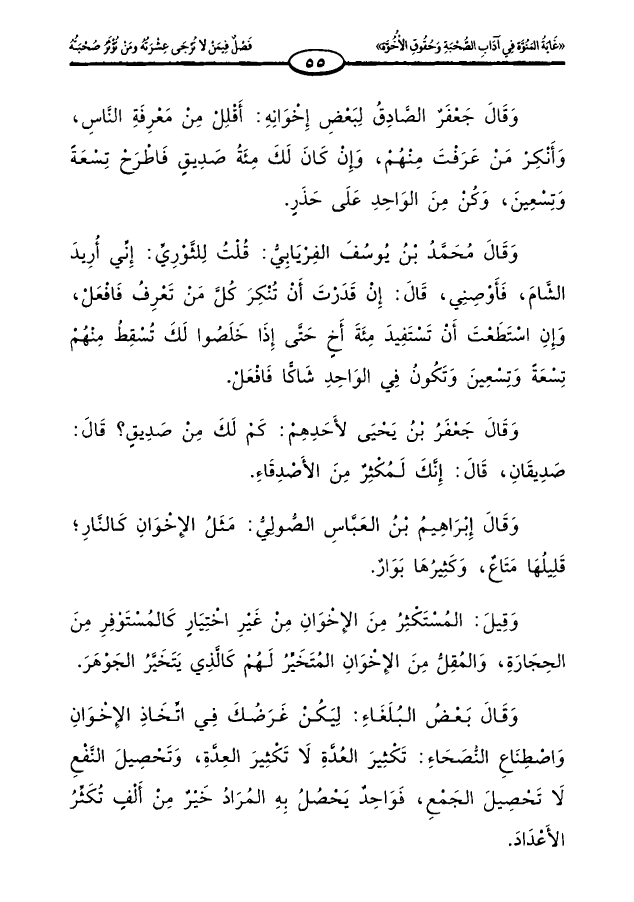 «غَايَةُ المُنُوَّة فِي آدَابِ الصُّحْبَةِ وَحُقُوقِ الأُخُوَّة»
فَصْلٌ فِيمَنْ لَا تُرْجَى عِشْرَتُهُ وَمَنْ تُؤْثَرُ صُحْبَتُهُ
٥٥
وَقَالَ جَعْفَرٌ الصَّادِقُ لِبَعْضِ إِخْوَانِهِ: أَقْلِلْ مِنْ مَعْرِفَةِ النَّاسِ،
وَأَنْكِرْ مَنْ عَرَفْتَ مِنْهُمْ، وَإِنْ كَانَ لَكَ مِئَةُ صَدِيقٍ فَاطْرَحْ تِسْعَةً
وَتِسْعِينَ، وَكُنْ مِنَ الوَاحِدِ عَلَى حَذَرٍ.
وَقَالَ مُحَمَّدُ بْنُ يُوسُفَ الفِرْيَابِيُّ: قُلْتُ لِلثَّوْرِيِّ: إِنِّي أُرِيدَ
الشَّامَ، فَأَوْصِنِي، قَالَ: إِنْ قَدَرْتَ أَنْ تُنْكِرَ كُلَّ مَنْ تَعْرِفُ فَافْعَلْ،
وَإِنِ اسْتَطَعْتَ أَنْ تَسْتَفِيدَ مِئَةَ أَخٍ حَتَّى إِذَا خَلَصُوا لَكَ تُسْقِطُ مِنْهُمْ
تِسْعَةً وَتِسْعِينَ وَتَكُونُ فِي الوَاحِدِ شَاكًّا فَافْعَلْ.
وَقَالَ جَعْفَرُ بْنُ يَحْيَى لأَحَدِهِمْ: كَمْ لَكَ مِنْ صَدِيقٍ؟ قَالَ:
صَدِيقَانِ، قَالَ: إِنَّكَ لَمُكْثِرٌ مِنَ الأَصْدِقَاءِ.
وَقَالَ إِبْرَاهِيمُ بْنُ العَبَّاسِ الصُّولِيُّ: مَثَلُ الإِخْوَانِ كَالنَّارِ؛
قَلِيلُهَا مَتَاعٌ، وَكَثِيرُهَا بَوَارٌ.
وَقِيلَ: المُسْتَكْثِرُ مِنَ الإِخْوَانِ مِنْ غَيْرِ اخْتِيَارٍ كَالمُسْتَوْفِرِ مِنَ
الحِجَارَةِ، وَالمُقِلُّ مِنَ الإِخْوَانِ المُتَخَيِّرُ لَهُمْ كَالَّذِي يَتَخَيَّرُ الجَوْهَرَ.
وَقَالَ بَعْضُ البُلَغَاءِ: لِيَكُنْ غَرَضُكَ فِي اتِّخَاذِ الإِخْوَانِ
وَاصْطِنَاعِ النُّصَحَاءِ: تَكْثِيرَ العُدَّةِ لَا تَكْثِيرَ العِدَّةِ، وَتَحْصِيلَ النَّفْعِ
لَا تَحْصِيلَ الجَمْعِ، فَوَاحِدٌ يَحْصُلُ بِهِ المُرَادُ خَيْرٌ مِنْ أَلْفٍ تُكَثِّرُ
الأَعْدَادَ.